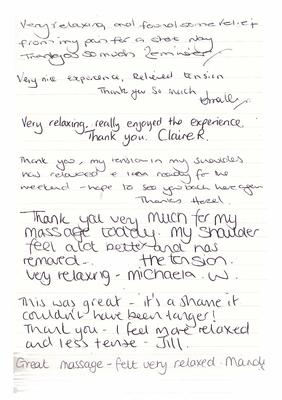 Very relaxing and found some relief
from my pain for a short
Thankyou so much
Very nice experience, Relieved tension
Thank you so much
Very relaxing, really enjoyed the experience.
Thank you. Claire R.
Thank you, my tension in my shoulders
has relaxed & I am ready for the
weekend - hope to see you back here again
Thanks Hazel.
Thank you very much for my
massage today. my shoulder
feel alot better and has
removed . . the tension.
Very relaxing - michaela. W.
This was great - it's a shame it
couldn't have been longer!
Thank you - I feel more relaxed
and less tense - Jill.
Great massage - felt very relaxed - Mandy